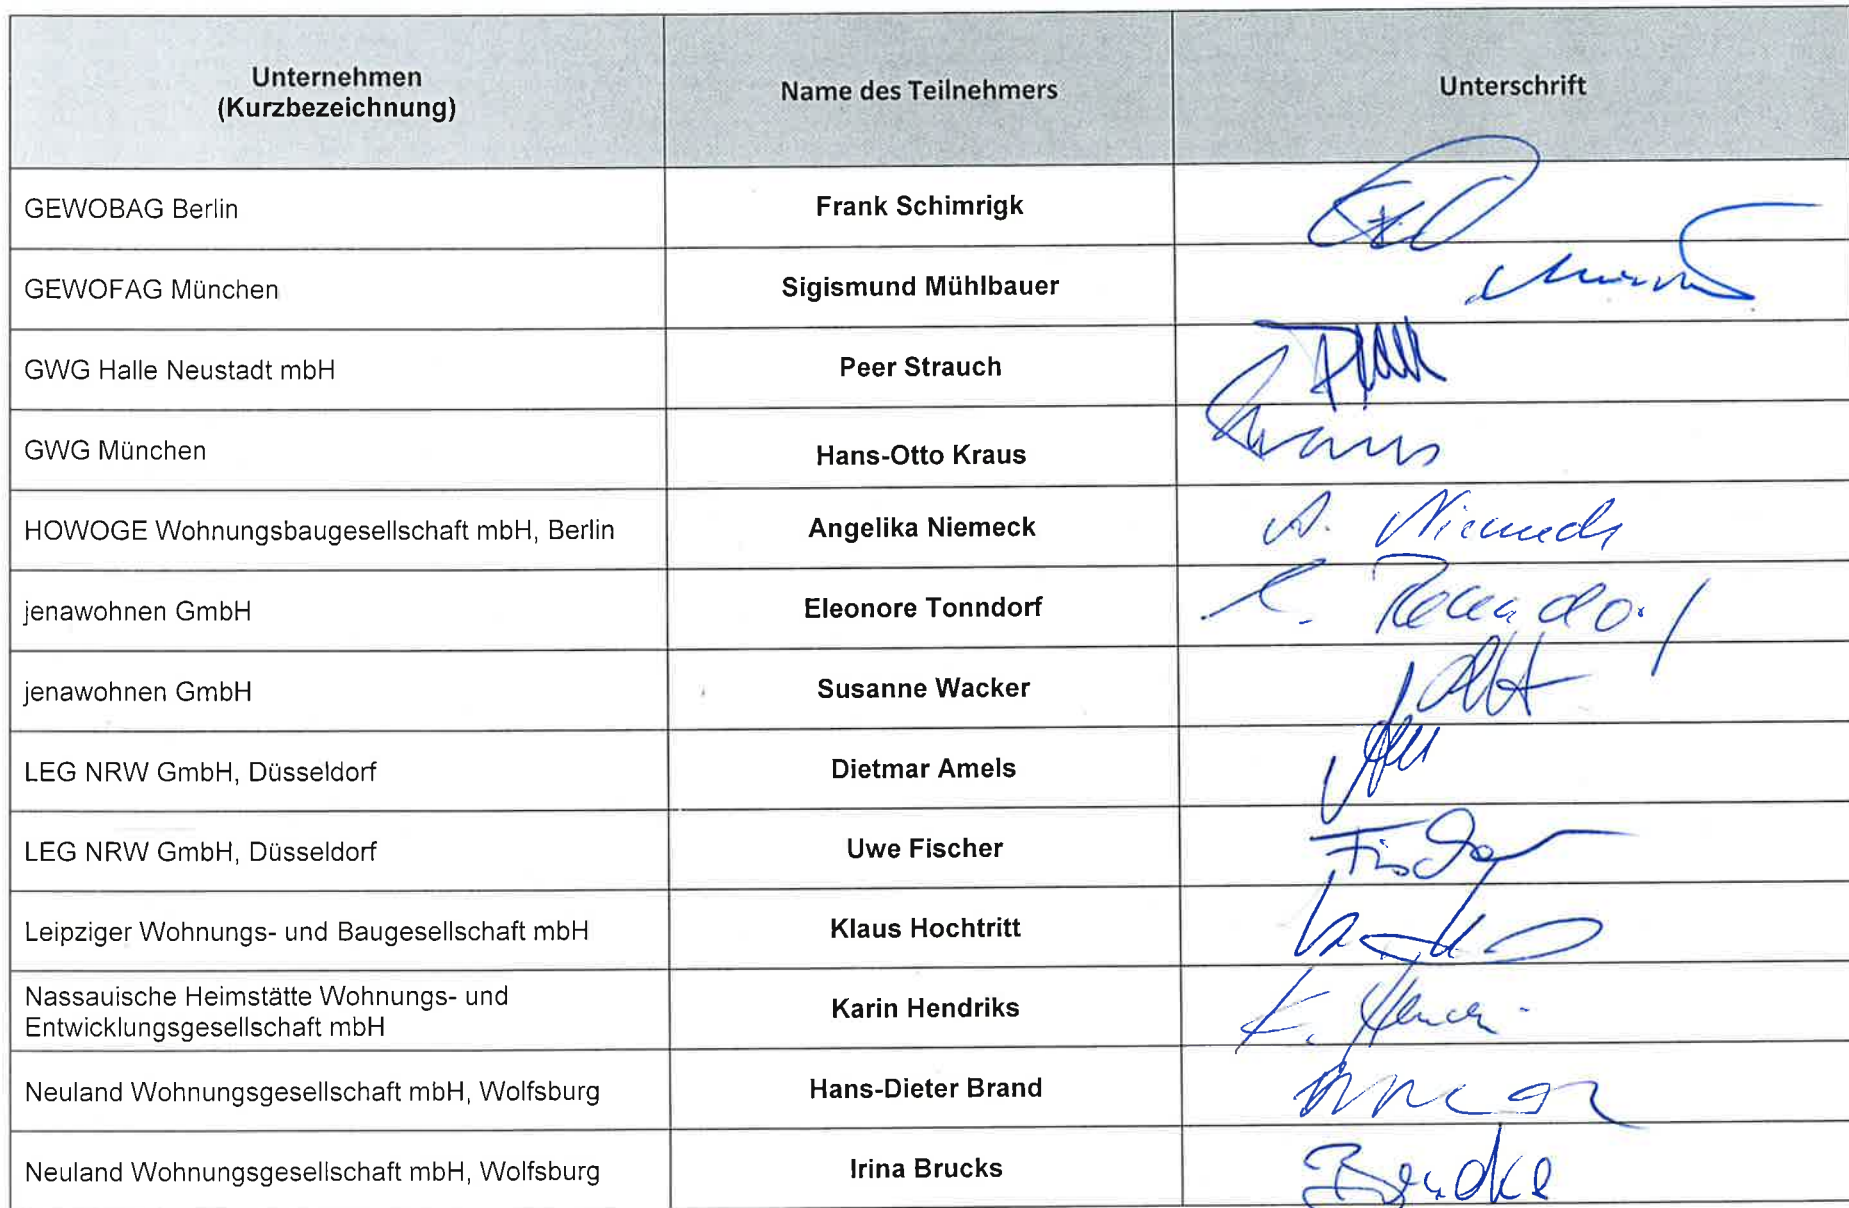 Unternehmen
(Kurzbezeichnung)
Name des Teilnehmers
Unterschrift
GEWOBAG Berlin
Frank Schimrigk
GEWOFAG München
Sigismund Mühlbauer
GWG Halle Neustadt mbH
Peer Strauch
GWG München
Hans-Otto Kraus
Kraus
HOWOGE Wohnungsbaugesellschaft mbH, Berlin
Angelika Niemeck
A. Niemeck
jenawohnen GmbH
Eleonore Tonndorf
jenawohnen GmbH
Susanne Wacker
LEG NRW GmbH, Düsseldorf
Dietmar Amels
LEG NRW GmbH, Düsseldorf
Uwe Fischer
Fischer
Leipziger Wohnungs- und Baugesellschaft mbH
Klaus Hochtritt
Nassauische Heimstätte Wohnungs- und
Entwicklungsgesellschaft mbH
Karin Hendriks
Neuland Wohnungsgesellschaft mbH, Wolfsburg
Hans-Dieter Brand
Neuland Wohnungsgesellschaft mbH, Wolfsburg
Irina Brucks